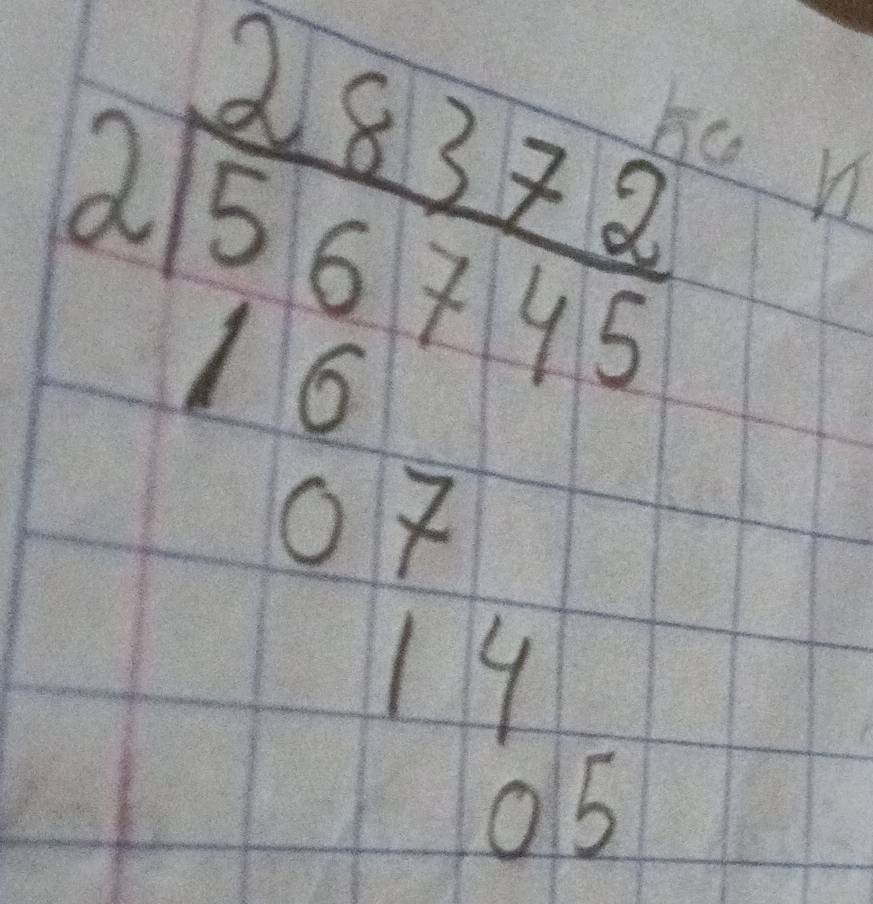 28372
2 56745
16
07
14
05